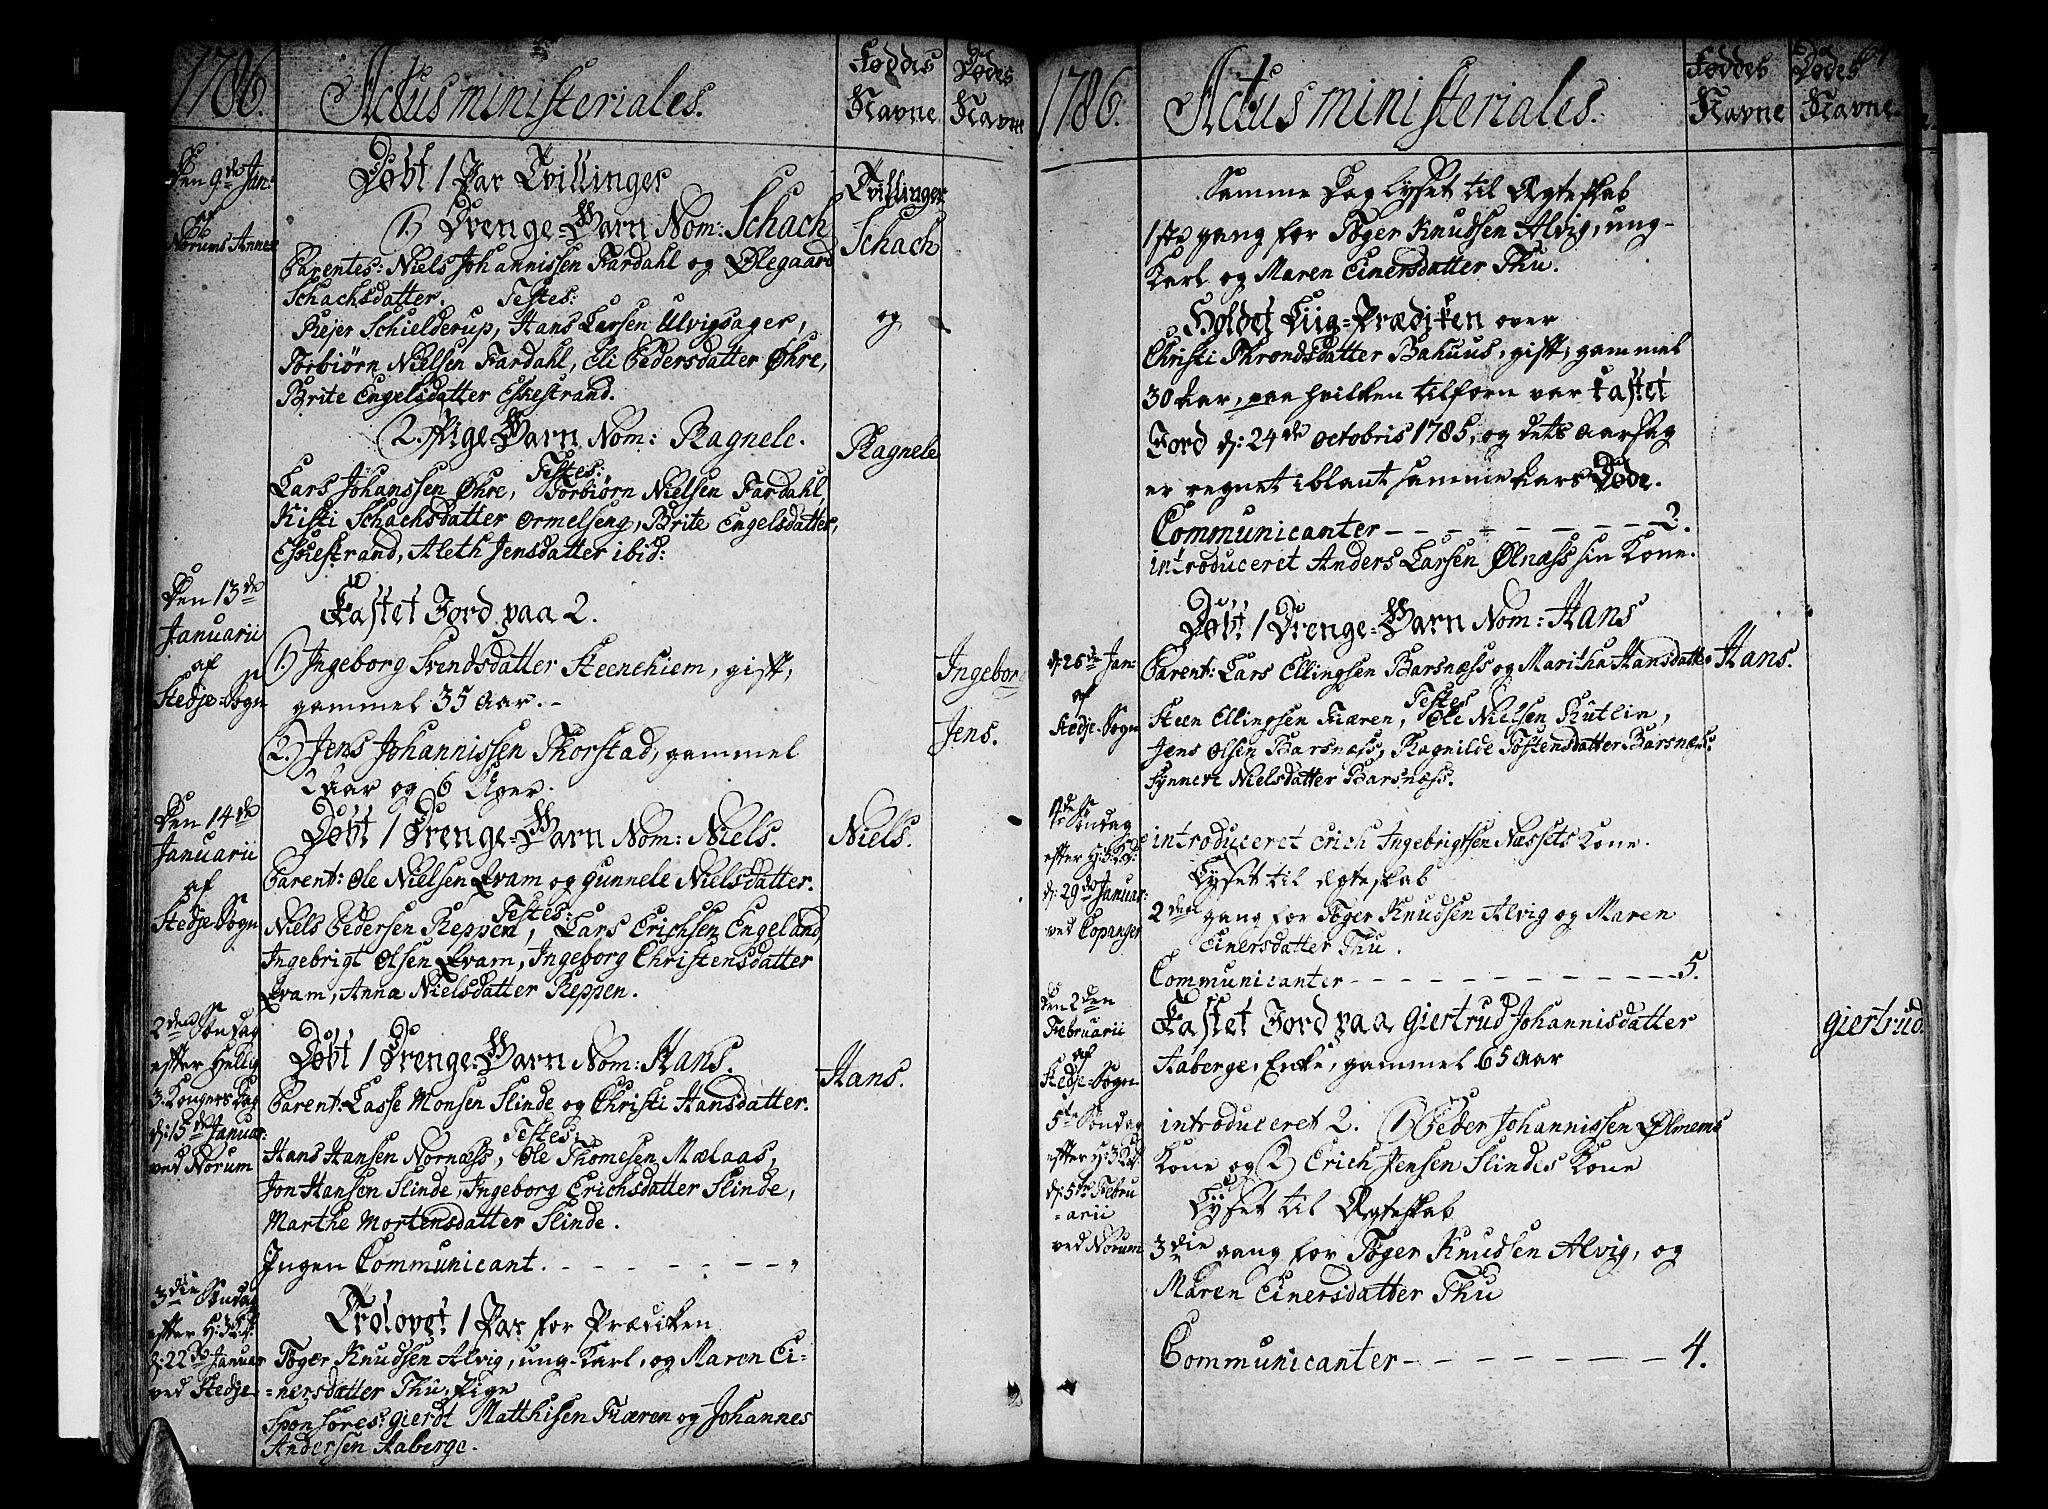 1786.
Actus ministeriales.
Føddes Navne
Dødes Navne
Den 9de Jan:
af
Norums Annex
Døbt 1 Par Tvillinger
1.) Drenge-Barn Nom: Schach
Parentes: Niels Johannissen Fardahl og Ølegaard
Schachsdatter. Testes:
Rejer Schielderup, Hans Larsen Ulvigsager,
Torbiørn Nielsen Fardahl, Eli Pedersdatter Øhre,
Brite Engelsdatter Eskestrand.
Tvillinger
Schach
og
2. Pige-Barn Nom: Ragnele.
Testes:
Lars Johanssen Øhre, Torbiørn Nielsen Fardahl,
Kisti Schachsdatter Ormelseng, Brite Engelsdatter,
Eskestrand, Aleth Jensdatter ibid:
Ragnele
Den 13de
Januarii
af
Stedje-Sogn
Kastet Jord paa 2.
1.) Ingeborg Svendsdatter Steenehiem, gift,
gammel 35 Aar. -
2.) Jens Johannissen Thorstad, gammel
2 Aar og 6 Uger.
Ingeborg
Jens.
Den 14de
Januarii
af
Stedje Sogn
Døbt 1 Drenge-Barn Nom: Niels.
Parent: Ole Nielsen Qvam og Gunnele Nielsdatter.
Testes:
Niels Pedersen Reppen, Lars Erichsen Engeland,
Ingebrigt Olsen Qvam, Ingeborg Christensdatter
Qvam, Anna Nielsdatter Reppen.
Niels.
2den Søndag
efter Hellig
3. Kongers Dag
d: 15de Januar:
ved Norum
Døbt 1 Drenge-Barn Nom: Hans.
Parent: Lasse Monsen Slinde og Christi Hansdatter.
Testes:
Hans Hansen Nornæss, Ole Thomesen Mælaas,
Jon Hansen Slinde, Ingeborg Erichsdatter Slinde,
Marthe Mortensdatter Slinde.
Ingen Communicant. - - - - - - -
Hans.
3die Søndag
efter H: 3 K: D:
d: 22de Januar
ved Stedje
Trolovet 1 Par for Prædiken
Tøger Knudsen Alvig, ung-Karl, og Maren Ei-
-nersdatter Thu, Pige
Sponsores: Gierdt Matthisen Fiæren og Johannes
Andersen Aaberge.
1786.
Actus ministeriales.
Føddes Navne
Dødes Navne.
Samme Dag lyset til Ægteskab
1ste gang for Tøger Knudsen Alvig, ung-
Karl og Maren Einersdatter Thu.
Holdet Liig-Prædiken over
Christi Throndsdatter Bahuus, gift, gammel
30 Aar, paa hvilken tilforn var kastet
Jord d: 24de Octobris 1785, og dets aarsag
er regnet iblant samme Aars Døde.
Communicanter - - - - - - - 2.
introduceret Anders Larsen Ølnæss sin Kone.
d: 26de Jan:
af
Stedje-Sogn
Døbt 1 Drenge-Barn Nom: Hans
Parent: Lars Ellingsen Barsnæss og Maritha Hansdatter
Testes
Steen Ellingsen Fiæren, Ole Nielsen Kutlin,
Jens Olsen Barsnæss, Ragnilde Tostensdatter Barsnæss:
Synneve Nielsdatter Barsnæss.
Hans.
4de Søndag
efter H: 3 K: D:
d: 29de Januar:
ved Copanger
introduceret Erich Ingebrigtsen Næssets Kone.
Lyset til Ægteskab
2den gang for Tøger Knudsen Alvig og Maren
Einersdatter Thu.
Communicanter - - - - - - - 5.
den 2den
Februarii
af
Stedje-Sogn
Kastet Jord paa Giertrud Johannisdatter
Aaberge, Enke, gammel 65 Aar
Giertrud.
5te Søndag
efter H: 3 K: D:
d: 5te Febru
-arii
ved Norum
introduceret 2. 1.) Peder Johannissen Ølmems
Kone og 2.) Erich Jensen Slindes Kone
Lyset til Ægteskab
3die gang for Tøger Knudsen Alvig, og
Maren Einersdatter Thu
Communicanter - - - - - - 4.